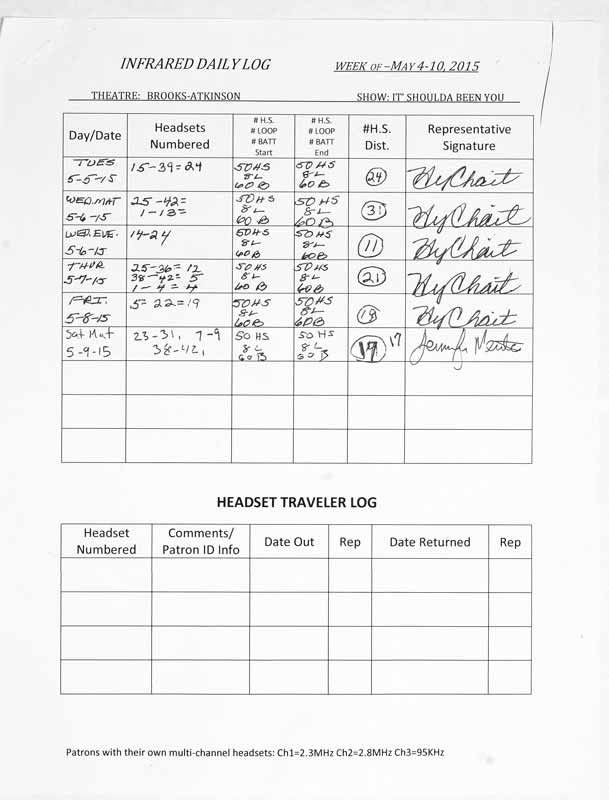 INFRARED DAILY LOG WEEK OF –MAY 4-10, 2015
THEATRE: BROOKS-ATKINSON SHOW: IT' SHOULDA BEEN YOU
Day/Date Headsets Numbered # H.S. # LOOP # BATT Start # H.S. # LOOP # BATT End #H.S. Dist. Representative Signature
TUES 5-5-15 15-39=24 50HS 8L 60B 50HS 8L 60B 24 Hy Chait
WED.MAT 5-6-15 25-42= 1-13= 50HS 8L 60B 50HS 8L 60B 31 Hy Chait
WED.EVE. 5-6-15 14-24 50HS 8L 60B 50HS 8L 60B 11 Hy Chait
THUR 5-7-15 25-36=12 38-42=5 1-4=4 50HS 8L 60B 50HS 8L 60B 21 Hy Chait
FRI. 5-8-15 5=22=19 50HS 8L 60B 50HS 8L 60B Hy Chait
Sat Mat 5-9-15 23-31, 7-9 38-42, 50 HS 8L 60B 50 HS 8L 60B 17 17 Jennifer
HEADSET TRAVELER LOG
Headset Numbered Comments/ Patron ID Info Date Out Rep Date Returned Rep
Patrons with their own multi-channel headsets: Ch1=2.3MHz Ch2=2.8MHz Ch3=95KHz